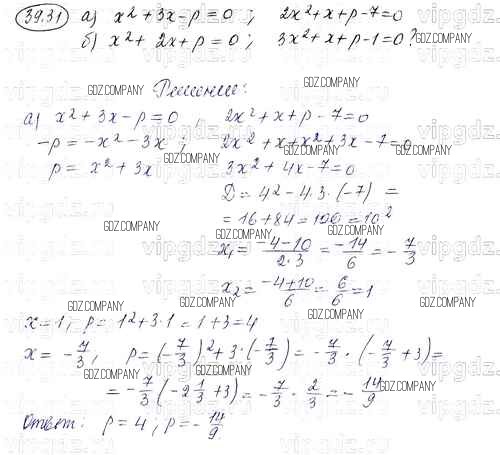 39.31 а) x² + 3x - p = 0 ; 2x² + x + p - 7 = 0
б) x² + 2x + p = 0 ; 3x² + x + p - 1 = 0 ?
Решение:
а) x² + 3x - p = 0 , 2x² + x + p - 7 = 0
-p = -x² - 3x ; 2x² + x + x² + 3x - 7 = 0
p = x² + 3x 3x² + 4x - 7 = 0
D = 4² - 4·3·(-7) =
= 16 + 84 = 100 = 10²
x₁ = (-4-10)/(2·3) = -14/6 = -7/3
x₂ = (-4+10)/6 = 6/6 = 1
x = 1, p = 1² + 3·1 = 1 + 3 = 4
x = -7/3, p = (-7/3)² + 3·(-7/3) = -7/3 · (-7/3 + 3) =
= -7/3 (-2 1/3 + 3) = -7/3 · 2/3 = -14/9
Ответ: p = 4 ; p = -14/9.